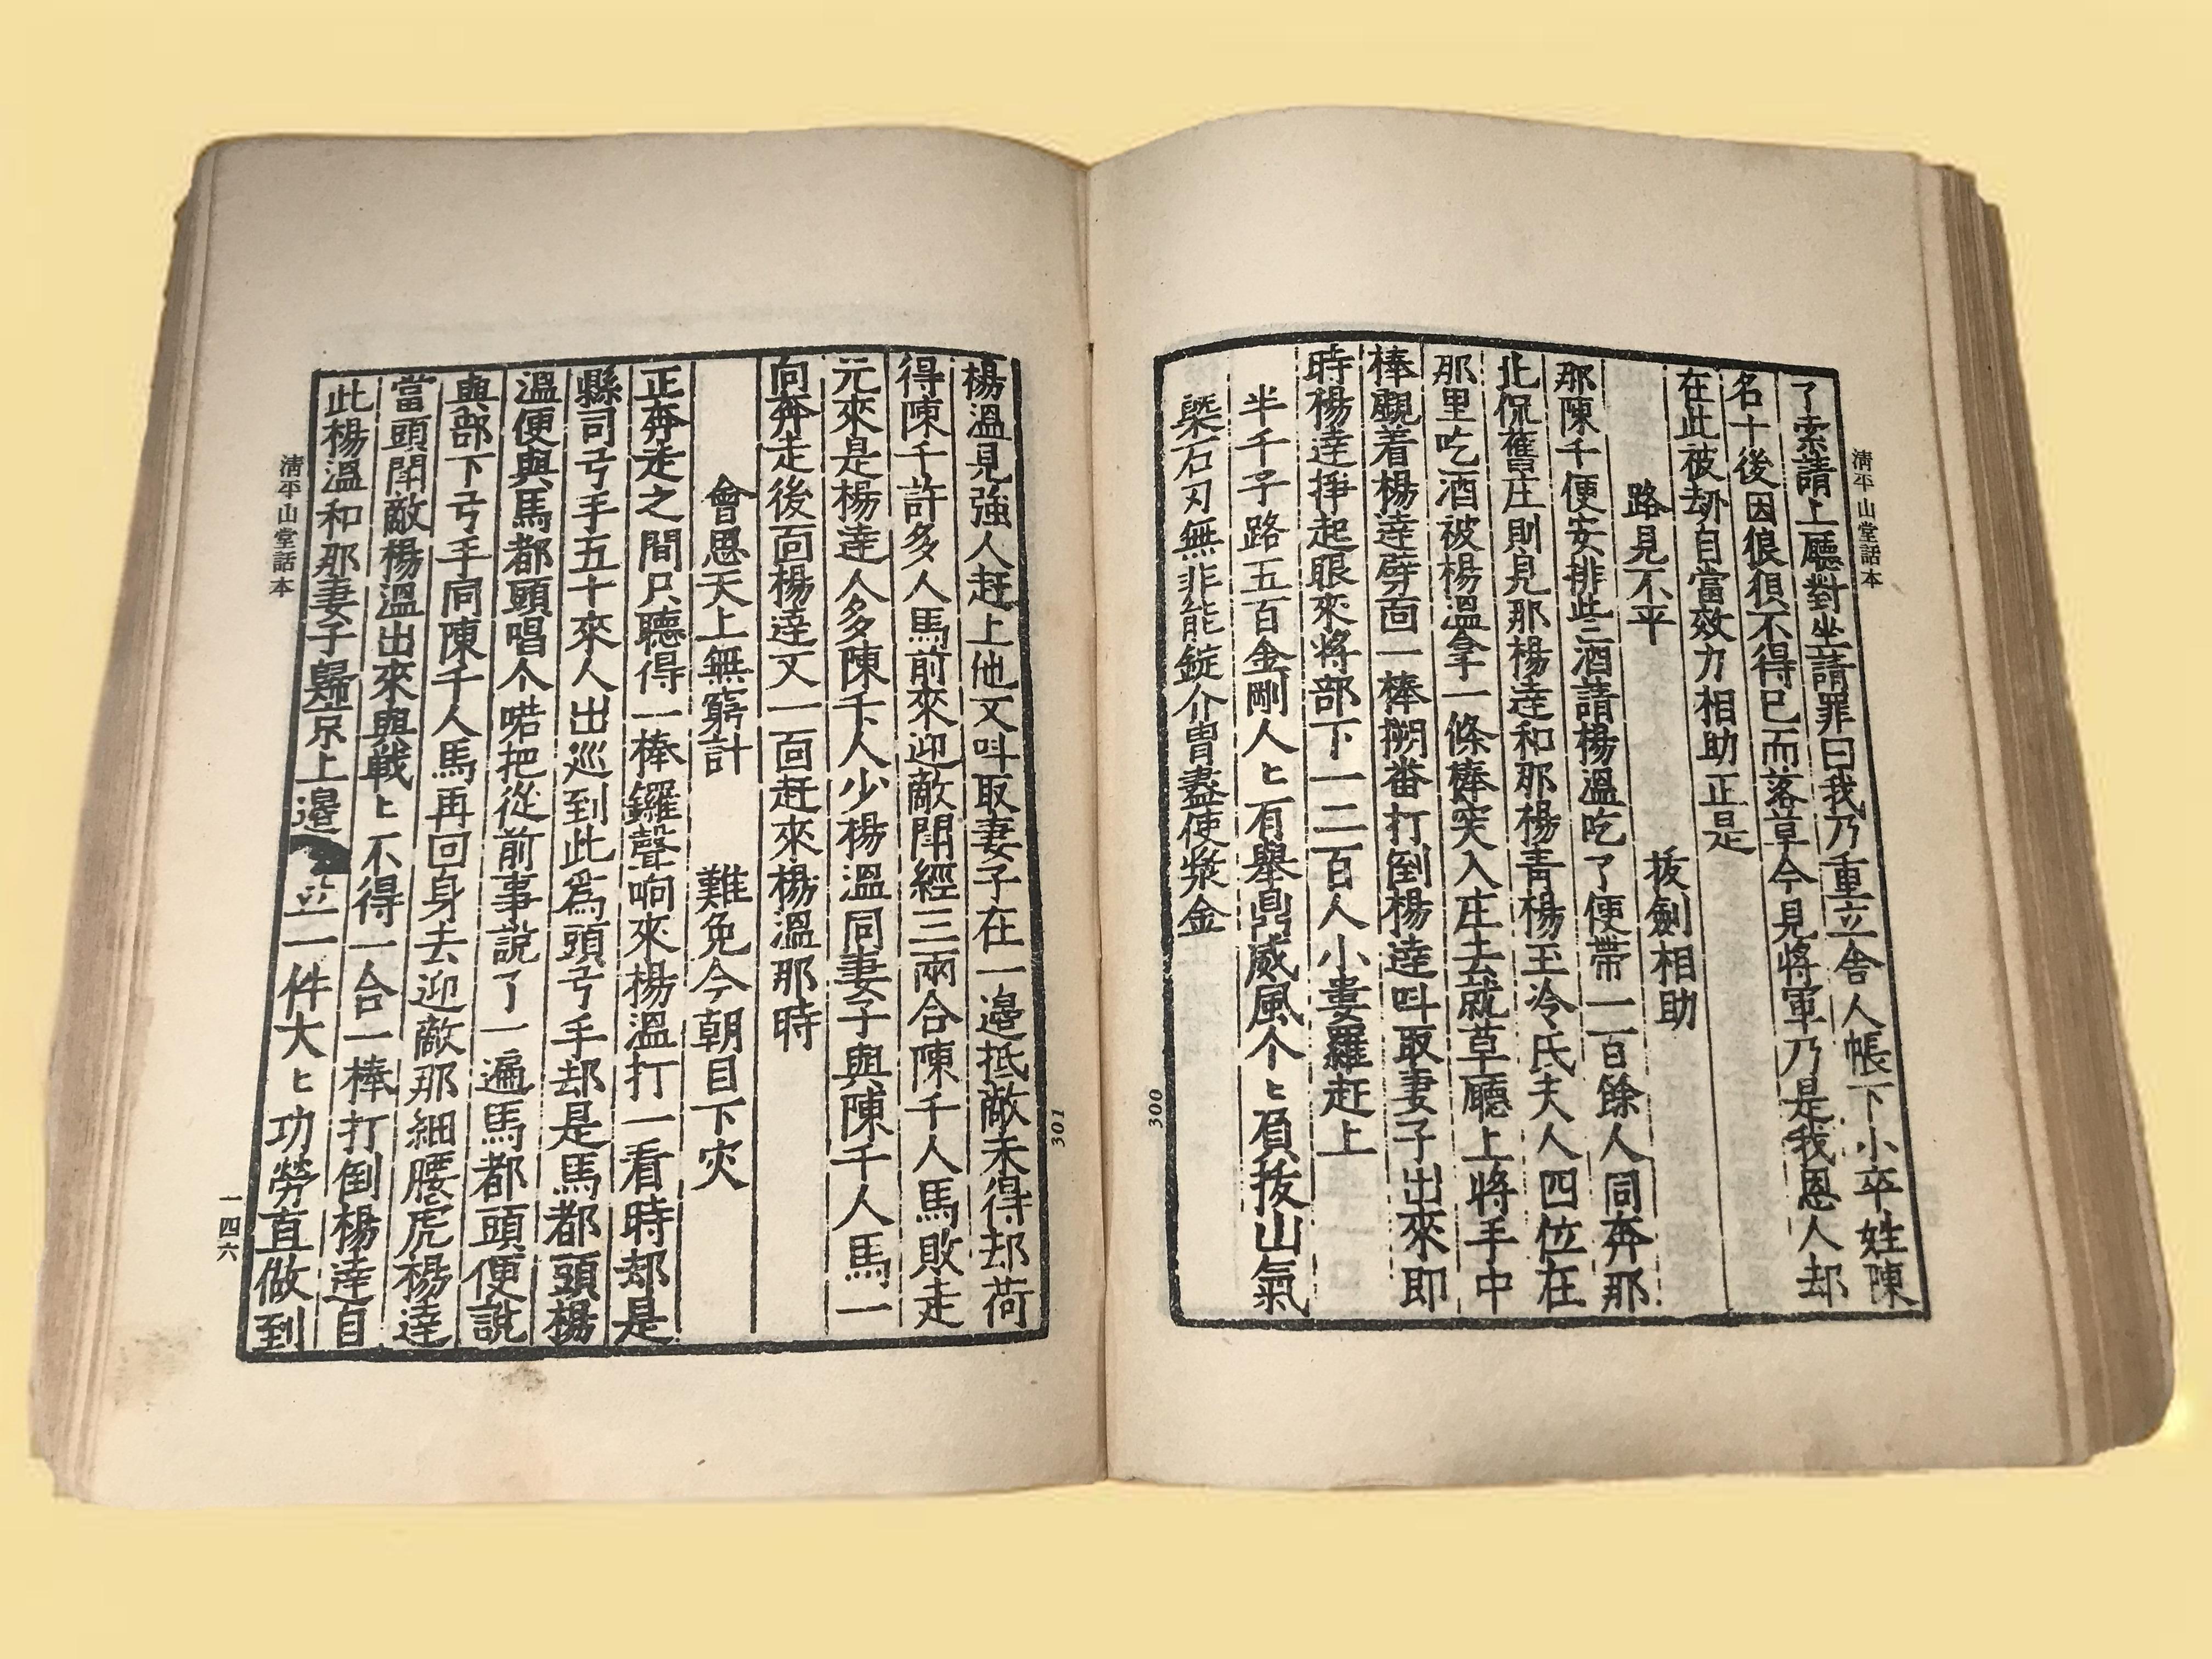 清平山堂話本
了索請上廳對坐請罪曰我乃重立舍人帳下小卒姓陳
名十後因狼狽不得已而落草今見將軍乃是我恩人却
在此被刼自當效力相助正是
路見不平 拔劍相助
那陳千便安排些酒請楊溫吃了便帶一百餘人同奔那
北侃舊庄則見那楊達和那楊青楊玉冷氏夫人四位在
那里吃酒被楊溫拿一條棒突入庄去就草廳上將手中
棒覷着楊達劈面一棒搠番打倒楊達呌取妻子出來即
時楊達掙起眼來將部下一二百人小婁羅赶上
半千子路五百金剛人匕有舉鼎威風个匕負拔山氣
槩石刃無非能錠介胄盡使漿金
300
301
楊溫見強人赶上他又呌取妻子在一邉抵敵未得却荷
得陳千許多人馬前來迎敵鬥經三兩合陳千人馬敗走
元來是楊達人多陳千人少楊溫同妻子與陳千人馬一
向奔走後面楊達又一面赶來楊溫那時
會思天上無窮計 難免今朝目下灾
正奔走之間只聽得一棒鑼聲响來楊溫打一看時却是
縣司弓手五十來人出巡到此爲頭弓手却是馬都頭楊
溫便與馬都頭唱个喏把從前事說了一遍馬都頭便說
與部下弓手同陳千人馬再回身去迎敵那細腰虎楊達
當頭鬥敵楊溫出來與戰匕不得一合一棒打倒楊達自
此楊溫和那妻子歸京上邉立一件大匕功勞直做到
清平山堂話本
一四六